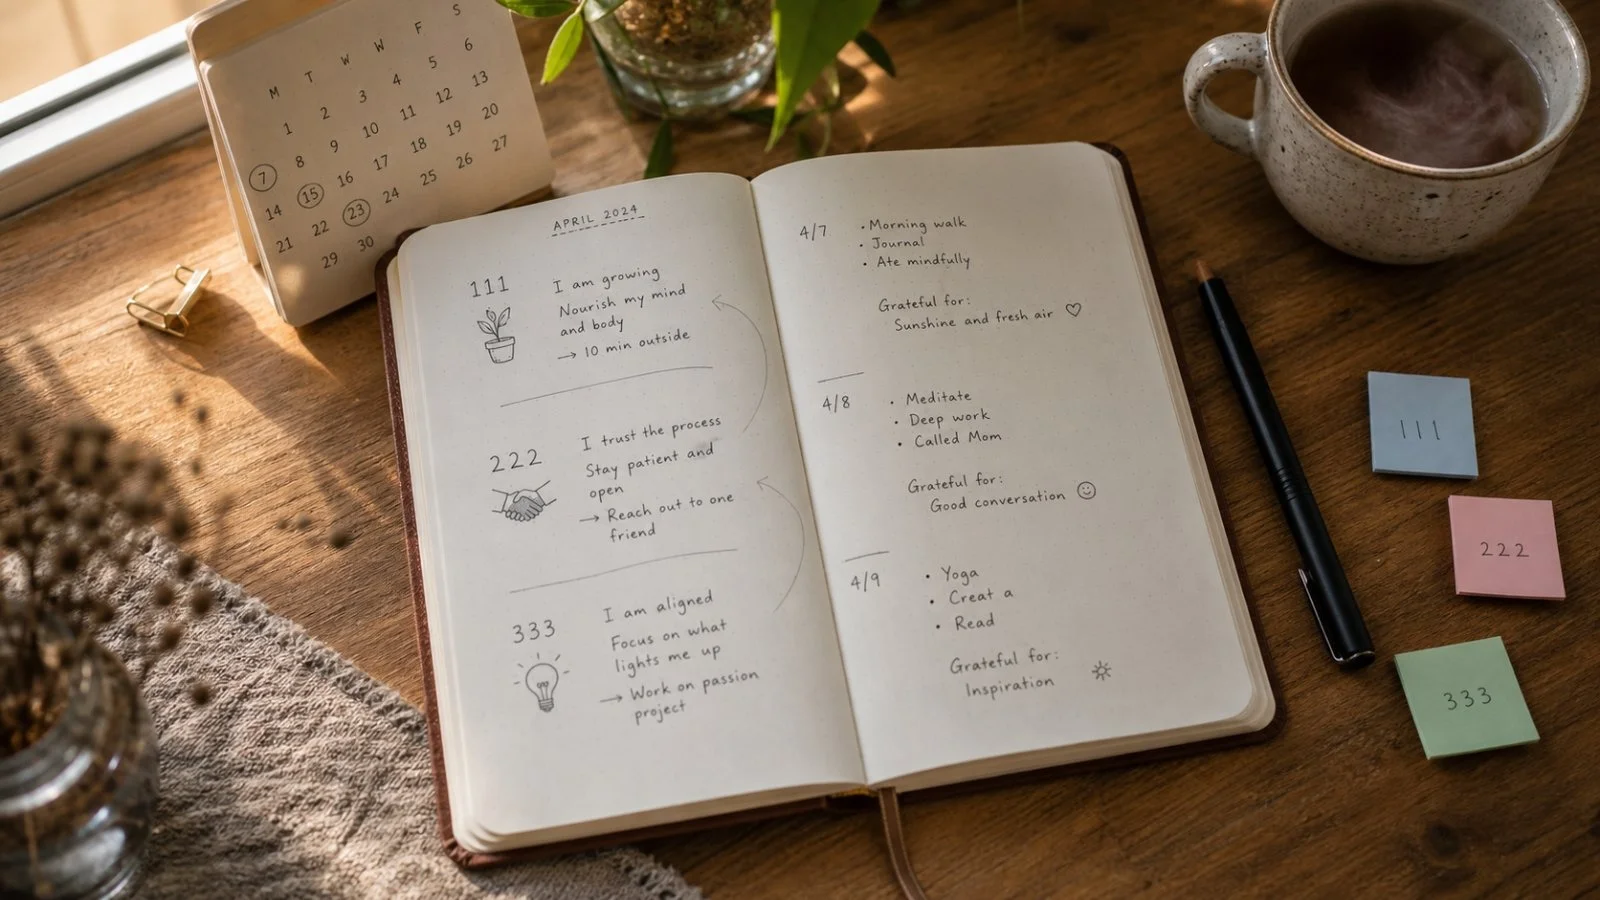 M T W W F S
1 2 3 4 5 6
7 8 9 10 11 12 13
14 15 16 17 18 19 20
21 22 23 24 25 26 27
29 30
APRIL 2024
111
I am growing
Nourish my mind
and body
→ 10 min outside
222
I trust the process
Stay patient and
open
→ Reach out to one
friend
333
I am aligned
Focus on what
lights me up
→ Work on passion
project
4/7
• Morning walk
• Journal
• Ate mindfully
Grateful for:
Sunshine and fresh air ♡
4/8
• Meditate
• Deep work
• Called Mom
Grateful for:
Good conversation ☺
4/9
• Yoga
• Creat a
• Read
Grateful for:
Inspiration ☼
111
222
333